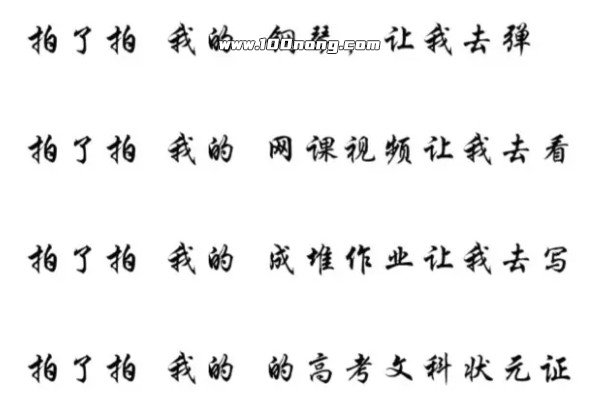 拍了拍 我的 钢琴，让我去弹
www.100nong.com
拍了拍 我的 网课视频让我去看
拍了拍 我的 成堆作业让我去写
拍了拍 我的 的高考文科状元证